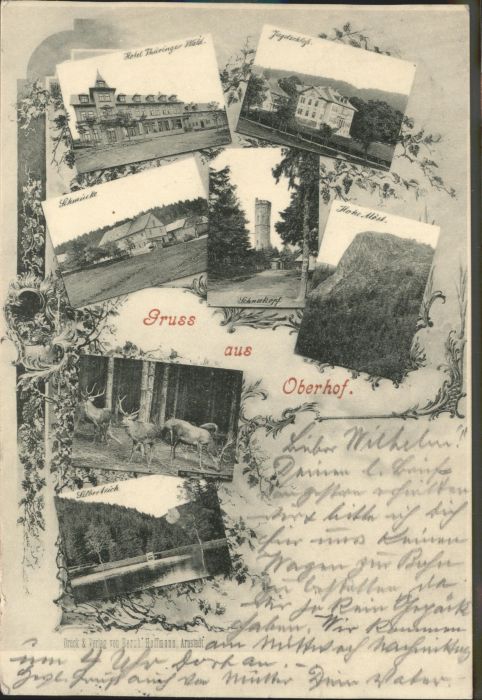 Hotel Thüringer Wald.
Jagdschloß.
Schmücke
Schneekopf
Hohe Möst.
Gruss
aus
Oberhof.
Silberteich
Druck & Verlag von Bernh. Hoffmann, Arnstadt
Lieber Wilhelm!
Deinen l. Brief
gestern erhalten
bitte ich Dich
hier uns keinen
Wagen zur Bahn
zu bestellen, da
wir ja kein Gepäck
haben. Wir kommen
am Mittwoch Nachmittag
um 4 Uhr dort an.
Herzl. Gruß auch von Mutter Dein Vater